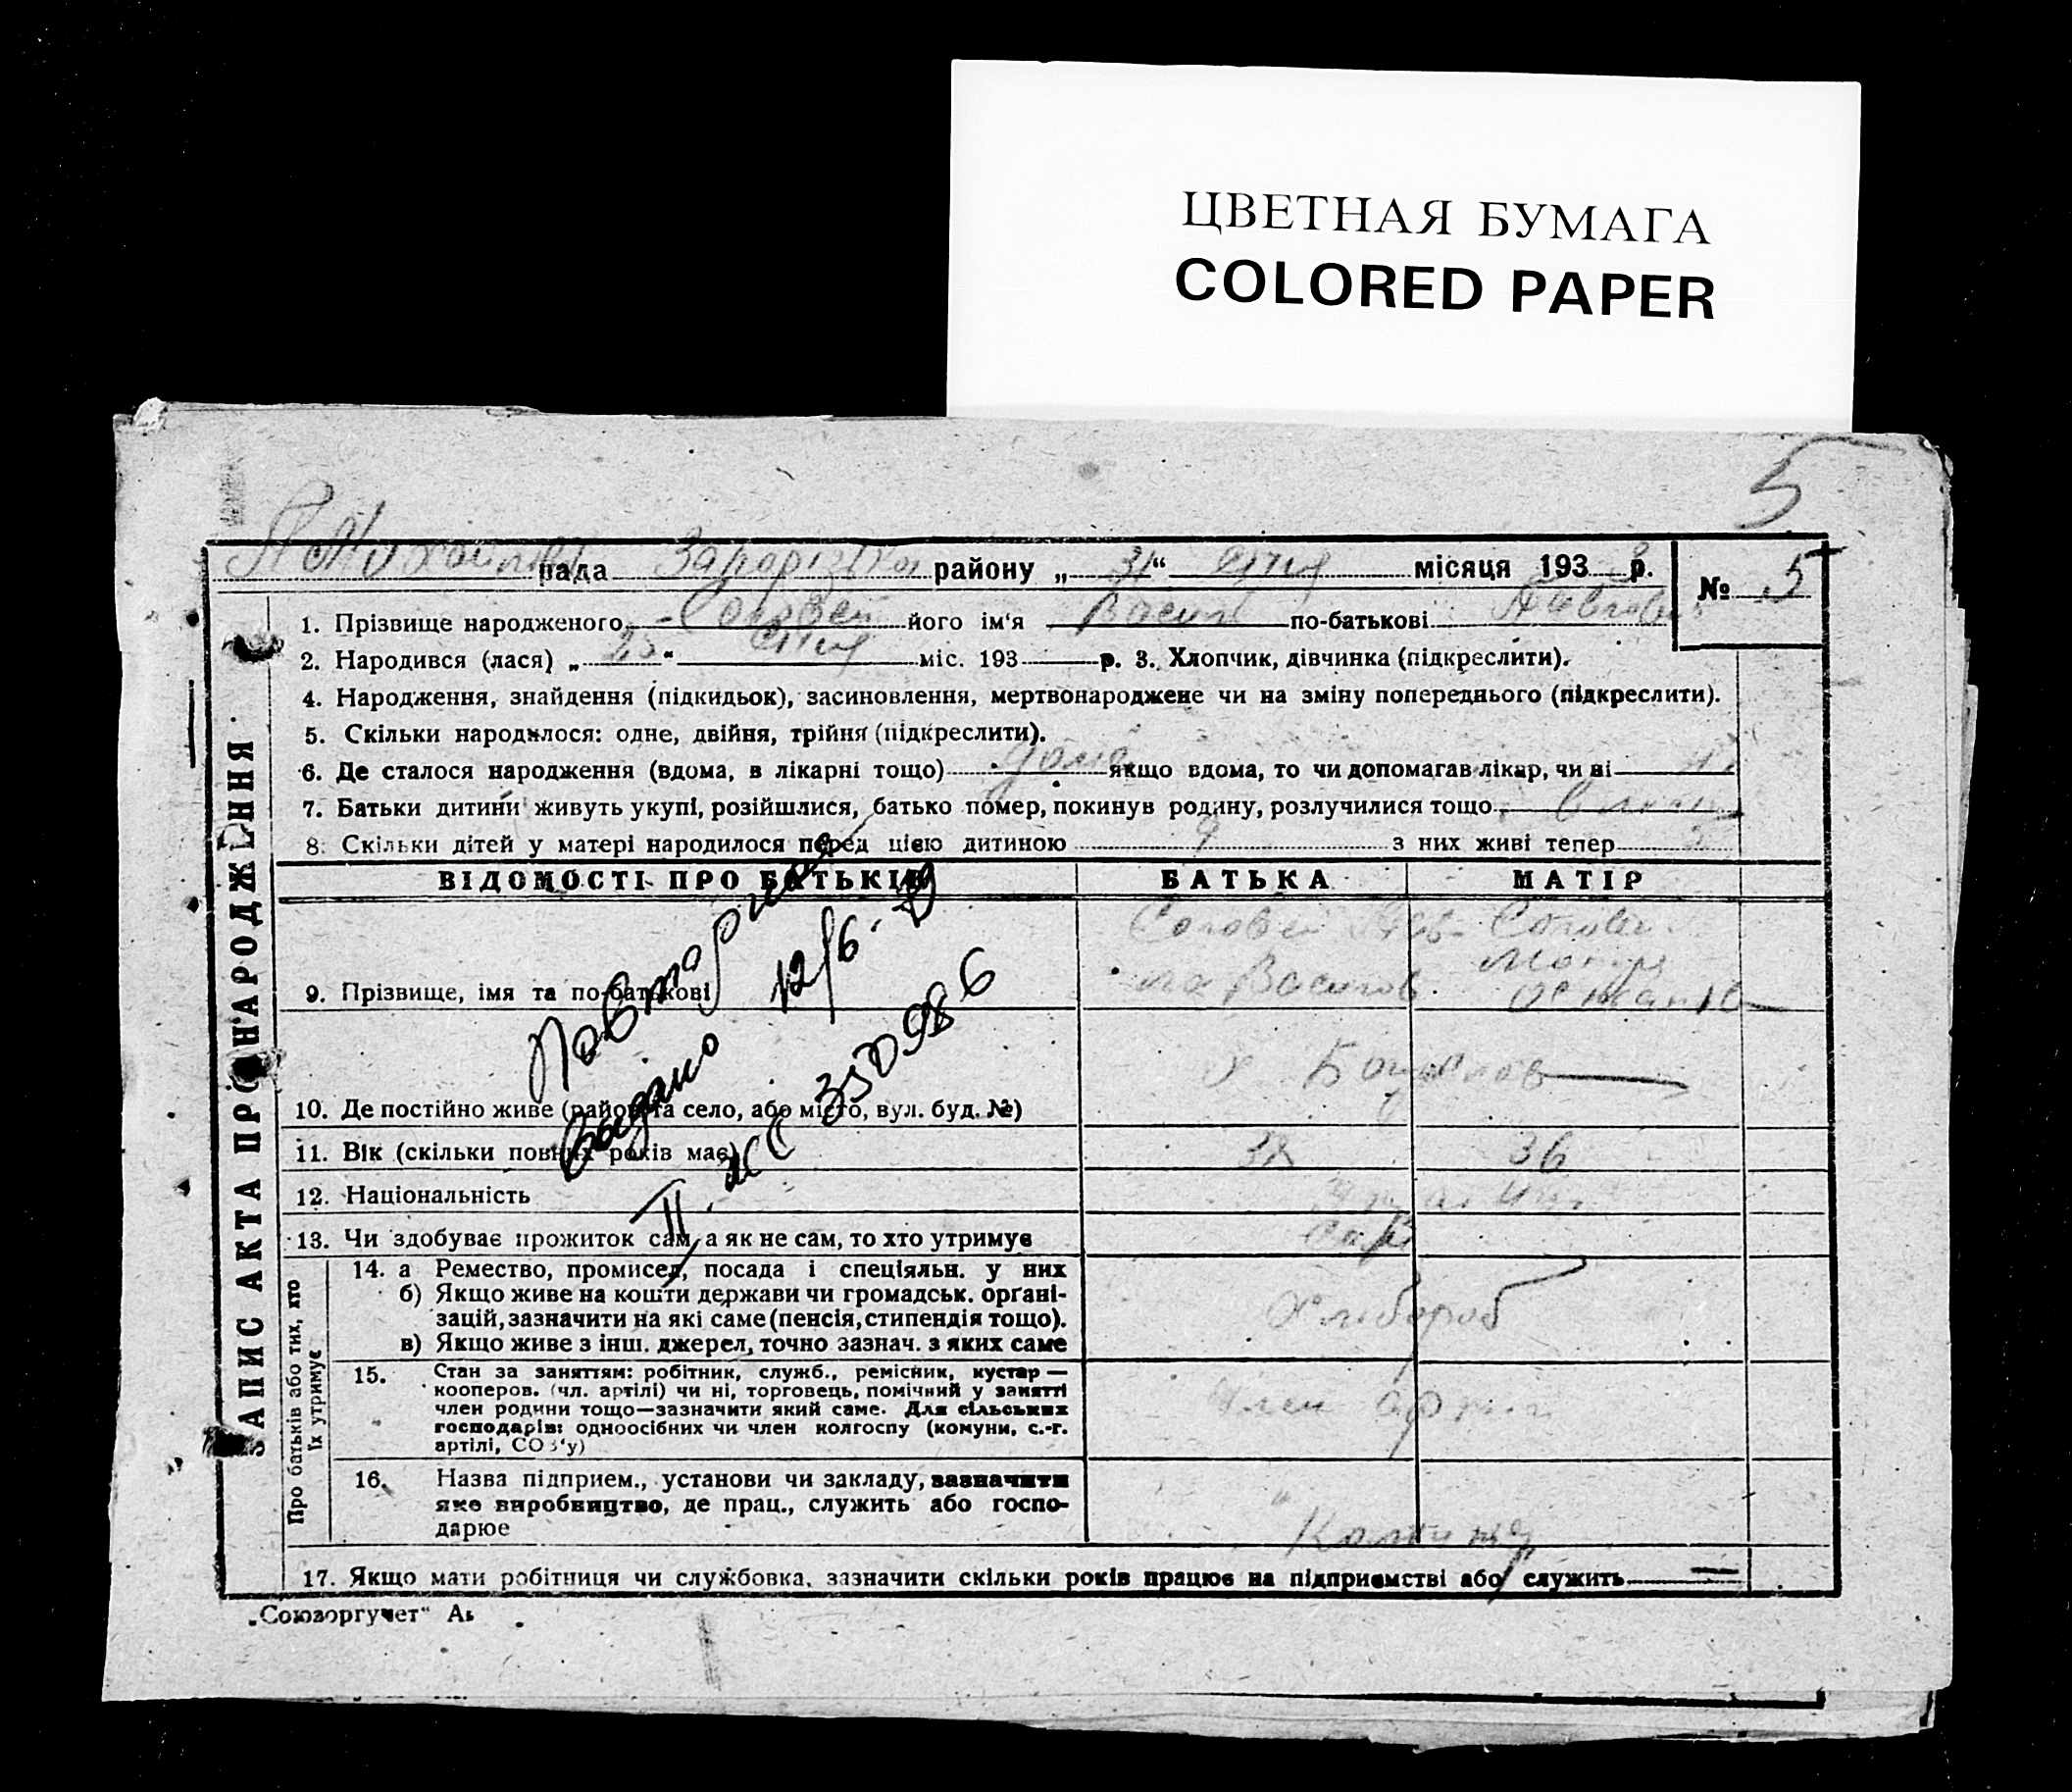 ЦВЕТНАЯ БУМАГА
COLORED PAPER
5
рада Запорізького району „31“ січня місяця 1933 р. № 5
1. Прізвище народженого Соловей його ім'я Василь по-батькові Павлович
2. Народився (лася) „25“ січня міс. 193 р. 3. Хлопчик, дівчинка (підкреслити).
4. Народження, знайдення (підкидьок), засиновлення, мертвонароджене чи на зміну попереднього (підкреслити).
5. Скільки народилося: одне, двійня, трійня (підкреслити).
6. Де сталося народження (вдома, в лікарні тощо) дома якщо вдома, то чи допомагав лікар, чи ні
7. Батьки дитини живуть укупі, розійшлися, батько помер, покинув родину, розлучилися тощо
8. Скільки дітей у матері народилося перед цією дитиною 9 з них живі тепер 5
ВІДОМОСТІ ПРО БАТЬКІВ БАТЬКА МАТІР
9. Прізвище, імя та по-батькові Соловей Пав- Солов.
ла Васильов.
10. Де постійно живе (район та село, або місто, вул. буд. №)
11. Вік (скільки повних років має) 38 36
12. Національність
13. Чи здобуває прожиток сам, а як не сам, то хто утримує сам
14. а Ремество, промисел, посада і спеціяльн. у них
б) Якщо живе на кошти держави чи громадськ. органі-
зацій, зазначити на які саме (пенсія, стипендія тощо).
в) Якщо живе з інш. джерел, точно зазнач. з яких саме
Хлібороб
15. Стан за заняттям: робітник, служб., ремісник, кустар —
кооперов. (чл. артілі) чи ні, торговець, помічний у занятті
член родини тощо—зазначити який саме. Для сільських
господарів: одноосібних чи член колгоспу (комуни, с.-г.
артілі, СОЗ'у)
член артілі
16. Назва підприєм., установи чи закладу, зазначити
яке виробництво, де прац., служить або госпо-
дарює
17. Якщо мати робітниця чи службовка, зазначити скільки років працює на підприємстві або служить
„Союзоргучет“
ЗАПИС АКТА ПРО НАРОДЖЕННЯ
Про батьків або тих, хто
їх утримує
Повторное
выдано 12/6-